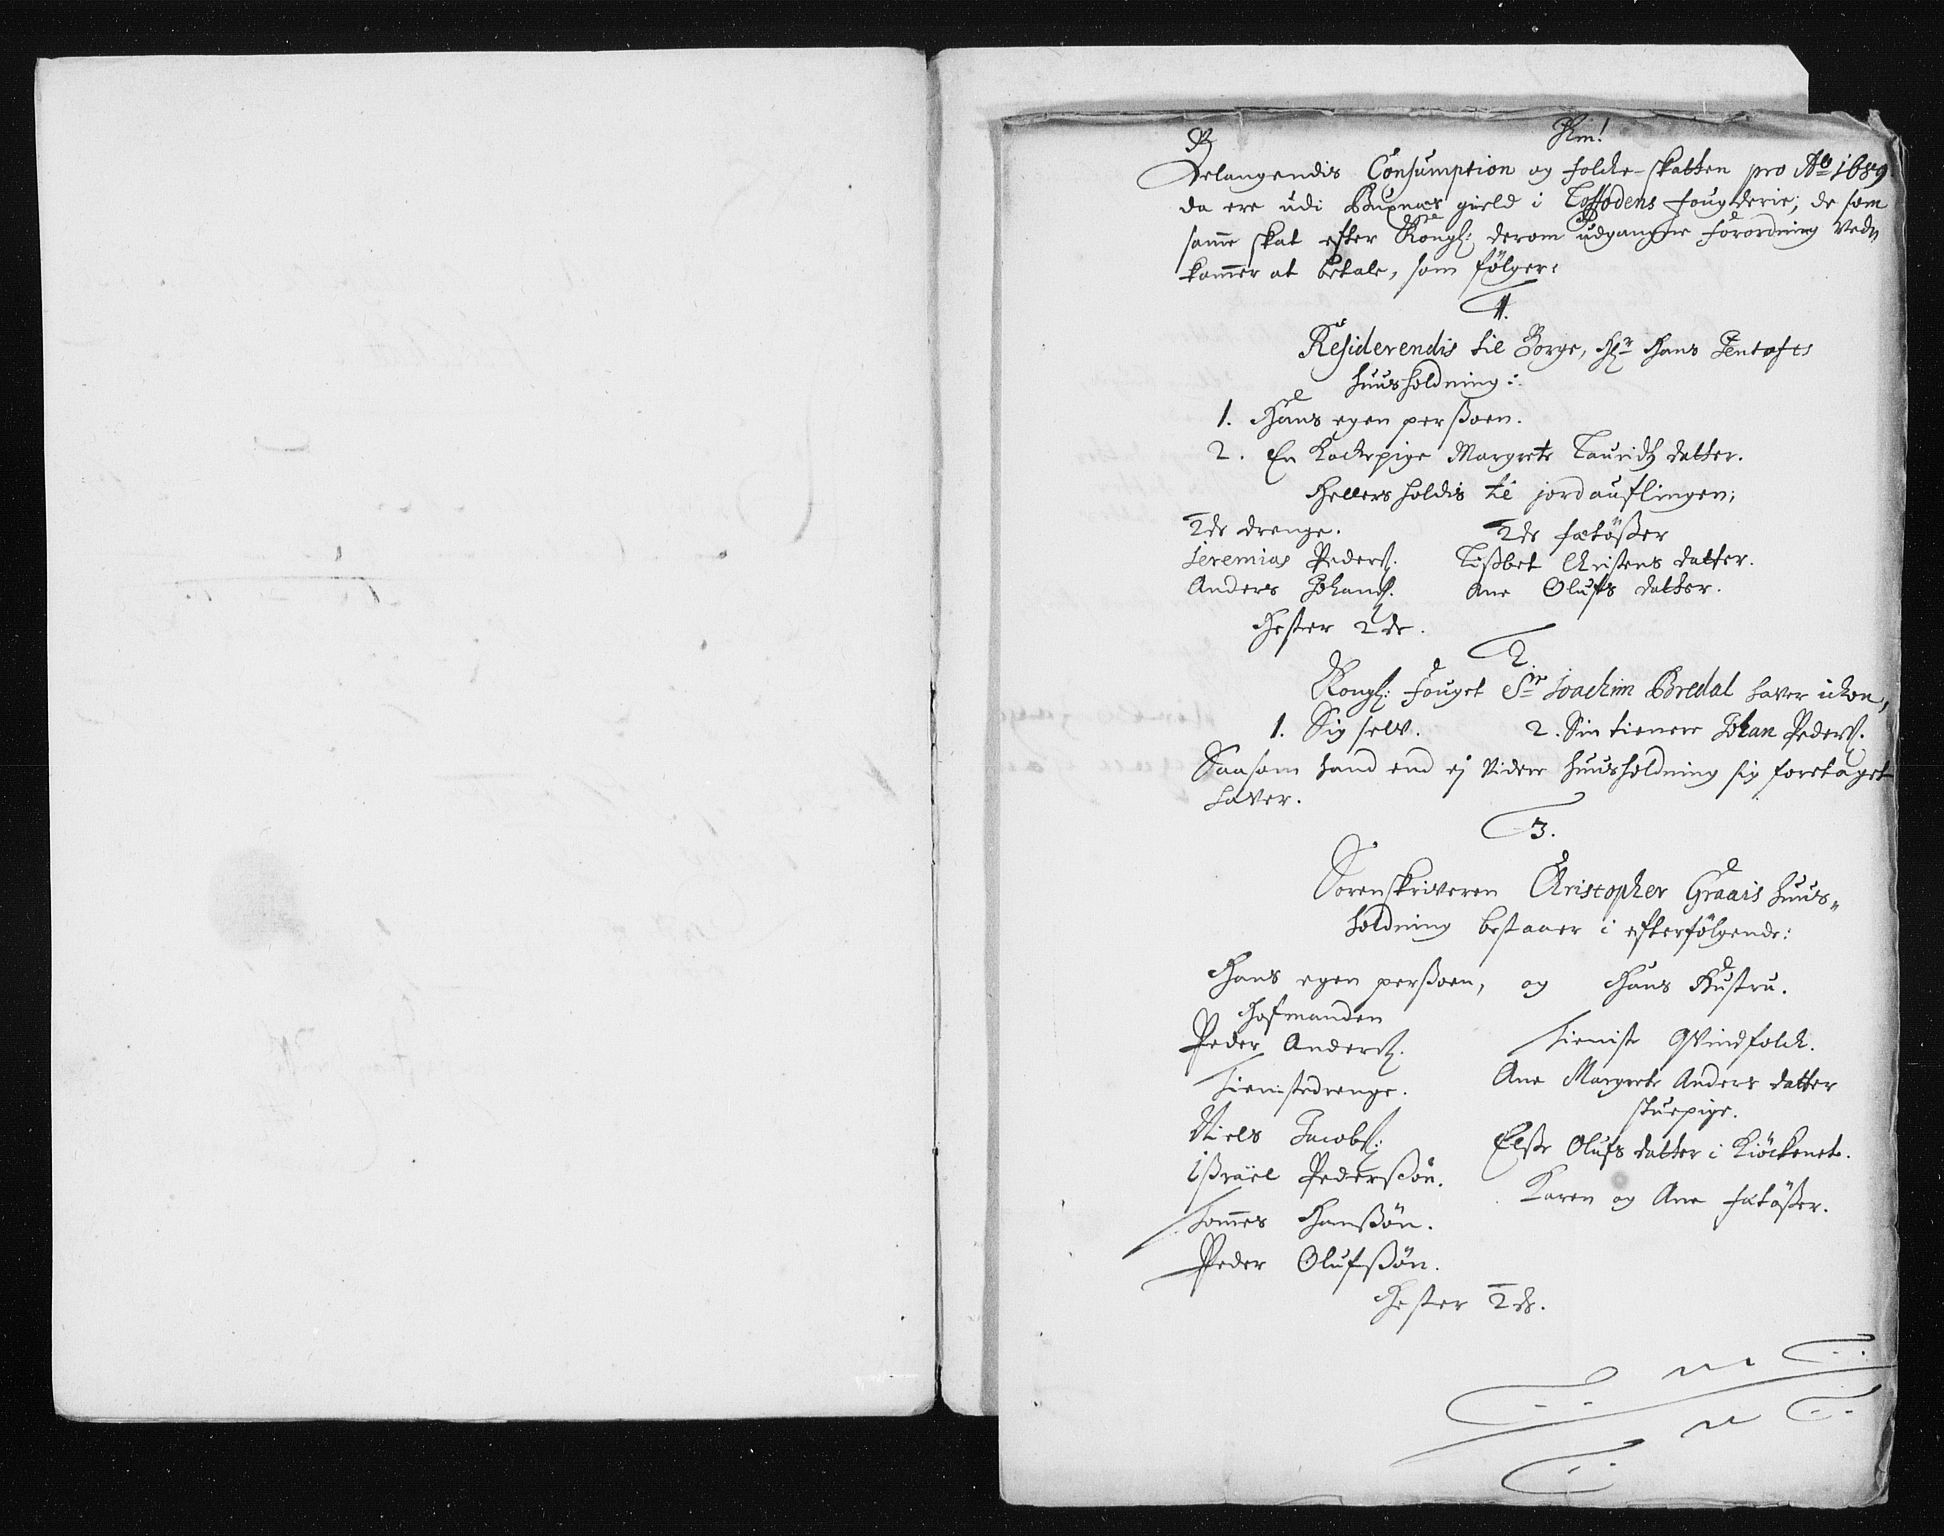 Belangendis Consumption og folcke-skatten pro Ao 1689
da ere udi Buxnæs gield i Loffodens fougderie, de som
samme skat efter Kongl: derom udgangne forordning ved
kommer at betale, som følger:
1.
Residerendis til Borge, Hr Hans Tentofts
huusholdning:
1. Hans egen persoen.
2. En Kockepige Margrete Lauridz datter.
Hellers holdis til jordauflingen;
2de drenge. 2de fætøßer
Jeremias Peders. Lißbet Christens datter.
Anders Johans. Ane Olufs datter.
Hester 2de.
2
Kongl: fouget Sr Joachim Bredal haver ickon,
1. Sig selv. 2. Sin tienere Johan Peders.
Saasom hand end ej videre huusholdning sig foretaget
haver.
3.
Sorenskriveren Christopher Graais huus-
holdning bestaaer i efterfølgende:
Hans egen persoen, og Hans Hustru.
Hofmanden
Peder Anders. tieniste Qvindfolck.
tienistedrenge. Ane Margrete Anders datter
stuepige.
Niels Jacobs: Elße Olufs datter i Kiöckenet.
Ißräel Pederssön. Karen og Ane fætößer.
Tommes Hanßön.
Peder Olufßön.
Hester 2de.